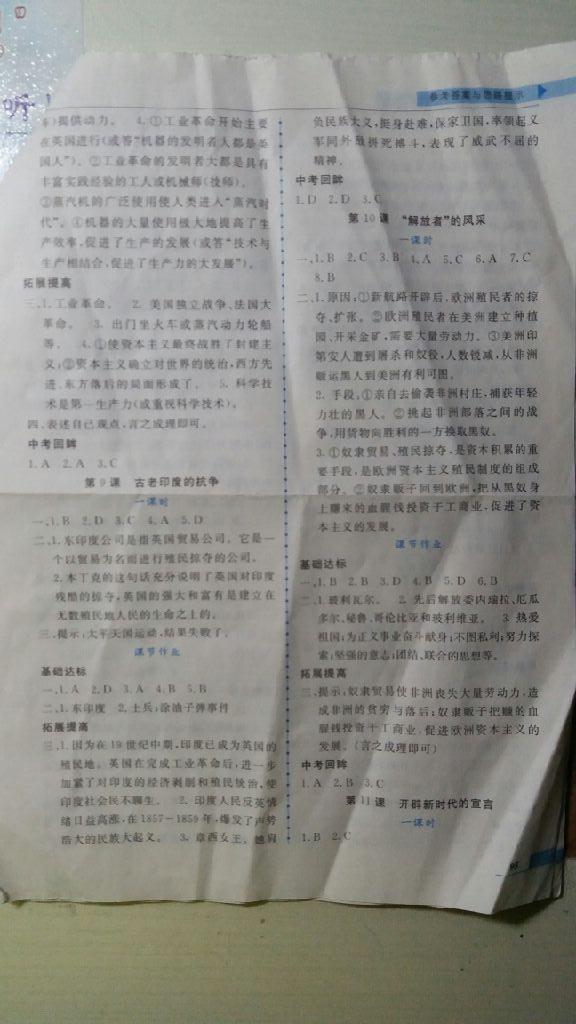 听
参考答案与思路提示
车)提供动力。 4.①工业革命开始主要
在英国进行(或答“机器的发明者大都是英
国人”)。②工业革命的发明者大都是具有
丰富实践经验的工人或机械师(技师)。
③蒸汽机的广泛使用使人类进入“蒸汽时
代”。④机器的大量使用极大地提高了生
产效率,促进了生产的发展(或答“技术与
生产相结合,促进了生产力的大发展”)。
拓展提高
三、1.工业革命。 2. 美国独立战争、法国大
革命。 3. 出门坐火车或蒸汽动力轮船
等。 4.①使资本主义最终战胜了封建主
义;②资本主义确立对世界的统治,西方先
进、东方落后的局面形成了。 5. 科学技
术是第一生产力(或重视科学技术)。
四、表述自己观点,言之成理即可。
中考回眸
1.A 2.A 3.C
第 9 课 古老印度的抗争
一课时
一、1.B 2.D 3.C 4.A 5.D
二、1.东印度公司是指英国贸易公司。它是一
个以贸易为名而进行殖民掠夺的公司。
2.本丁克的这句话充分说明了英国对印度
残酷的掠夺,英国的强大和富有是建立在
无数殖民地人民的生命之上的。
三、提示:太平天国运动,结果失败了。
课节作业
基础达标
一、1.A 2.D 3.A 4.B 5.B
二、1.东印度 2.土兵;涂油子弹事件
拓展提高
三、1.因为在19世纪中期,印度已成为英国的
殖民地。英国在完成工业革命后,进一步
加紧了对印度的经济剥削和殖民统治,使
印度社会民不聊生。 2. 印度人民反英情
绪日益高涨,在1857-1859年,爆发了声势
浩大的民族大起义。 3. 章西女王。她肩
负民族大义,挺身赴难,保家卫国,率领起义
军同外敌拼死搏斗,表现了威武不屈的
精神。
中考回眸
1.D 2.D 3.C
第 10 课 “解放者”的风采
一课时
一、1.B 2.C 3.B 4.A 5.C 6.A 7.C
8.B
二、1.原因:①新航路开辟后,欧洲殖民者的掠
夺、扩张。②欧洲殖民者在美洲建立种植
园、开采金矿,需要大量劳动力。③美洲印
第安人遭到屠杀和奴役,人数锐减,从非洲
贩运黑人到美洲有利可图。
2. 手段:①亲自去偷袭非洲村庄,捕获年轻
力壮的黑人。②挑起非洲部落之间的战
争,用货物向胜利的一方换取黑奴。
3.①奴隶贸易、殖民掠夺,是资本积累的重
要手段,是欧洲资本主义殖民制度的组成
部分。②奴隶贩子回到欧洲,把从黑奴身
上赚来的血腥钱投资于工商业,促进了资
本主义的发展。
课节作业
基础达标
一、1.B 2.B 3.D 4.B 5.D 6.B
二、1.玻利瓦尔。 2. 先后解放委内瑞拉、厄瓜
多尔、秘鲁、哥伦比亚和玻利维亚。 3. 热爱
祖国;为正义事业奋斗献身;不图私利;努力探
索;坚强的意志;团结、联合的思想等。
拓展提高
三、提示:奴隶贸易使非洲丧失大量劳动力,造
成非洲的贫穷与落后;奴隶贩子把赚的血
腥钱投资于工商业,促进欧洲资本主义的
发展。(言之成理即可)
中考回眸
1.A 2.B 3.C
第 11 课 开辟新时代的宣言
一课时
1.B 2.C